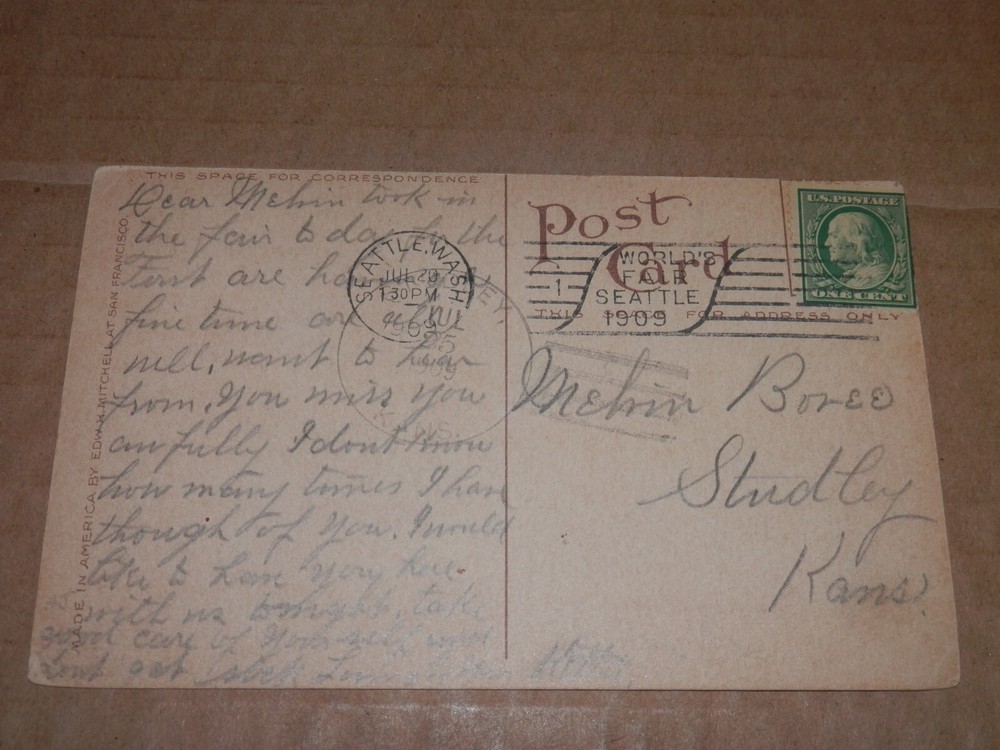 THIS SPACE FOR CORRESPONDENCE
Dear Melvin took in
the fair to day in the
are
fine time are
well, want to hear
from. You miss you
awfully I dont know
how many times I have
though of you. I would
like to have you here
with us tonight, take
good care of your self and
dont get sick
MADE IN AMERICA BY EDW. H. MITCHELL AT SAN FRANCISCO.
SEATTLE, WASH
JUL 20
1 30 PM
1909
1
WORLD'S
FAIR
SEATTLE
1909
Post
Card
THIS SPACE FOR ADDRESS ONLY
U.S. POSTAGE
ONE CENT
Melvin Boree
Studley
Kans.